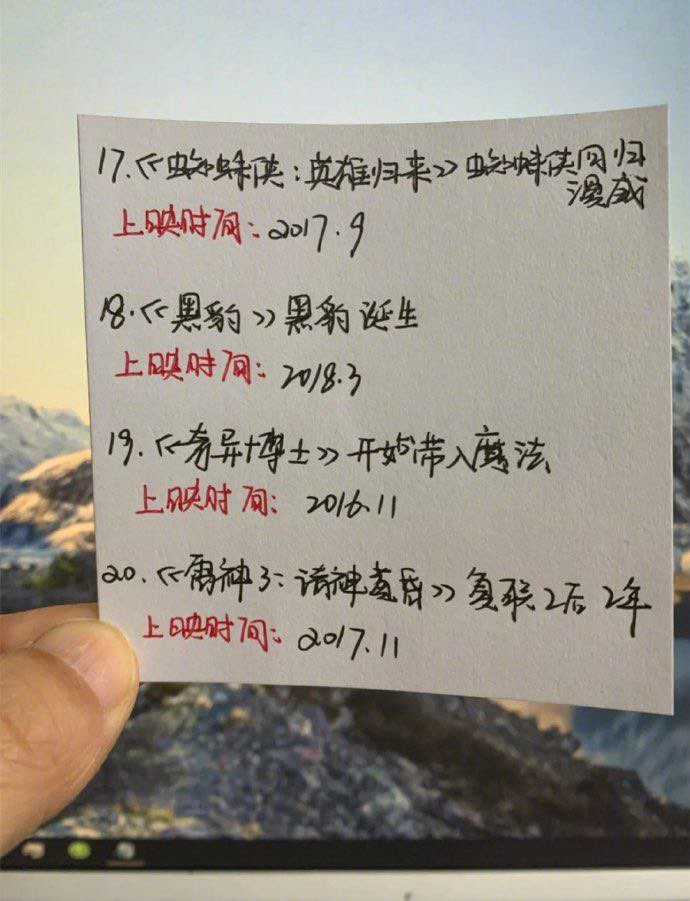 17.《蜘蛛侠:英雄归来》蜘蛛侠回归
漫威
上映时间:2017.9
18.《黑豹》黑豹诞生
上映时间:2018.3
19.《奇异博士》开始带入魔法
上映时间:2016.11
20.《雷神3:诸神黄昏》复联2后2年
上映时间:2017.11